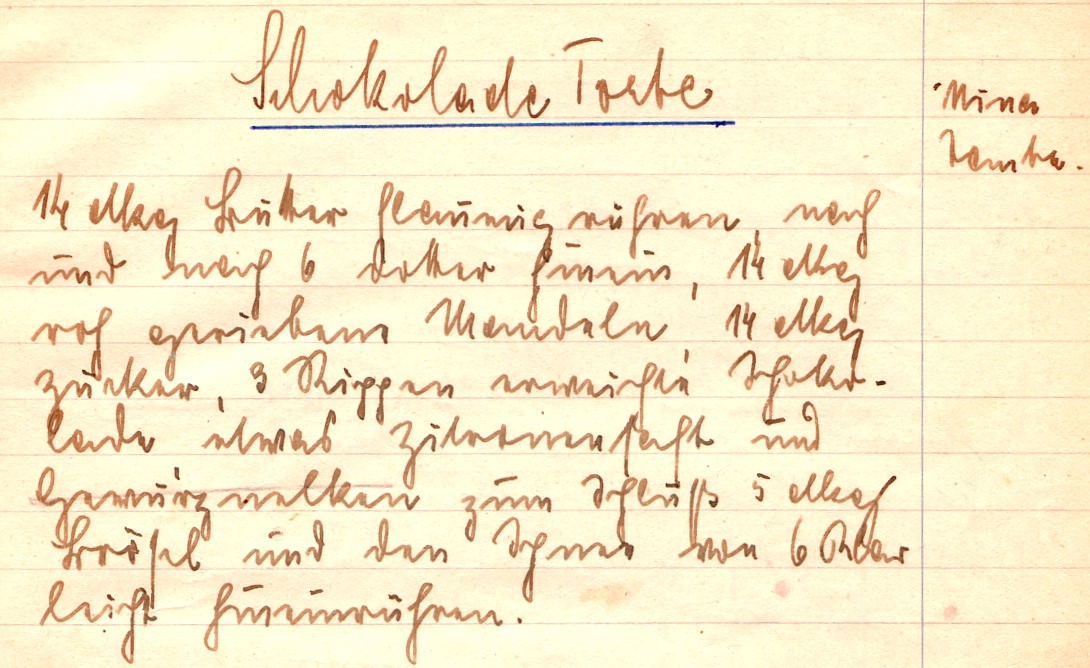 Schokolade Torte
Mina
Tante.
14 dkg Butter flaumig rühren, nach
und nach 6 Dotter hinein, 14 dkg
roh geriebene Mandeln, 14 dkg
Zucker, 3 Rippen erweichte Schoko-
lade etwas Zitronensaft und
Gewürznelken zum Schluß 5 dkg
Brösel und den Schnee von 6 Klar
leicht hineinrühren.